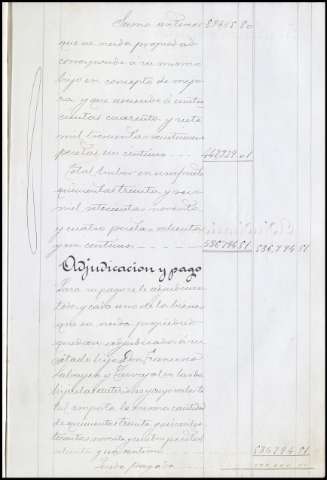 Suma anterior 89465.50
que en nuda propiedad
corresponde a su mismo
hijo en concepto de mejo
ra y que asciende á cuatro
cientas cuarenta y siete
mil trescientas veintinueve
pesetas un centimo 447329.01
Total haber en usufructo
quinientas treinta y seis
mil setecientas noventa
y cuatro pesetas cincuenta
y un centimos 536794.51 536,794.51
Adjudicacion y pago
Para su pago se le adjudican
todos y cada uno de los bienes
que en nuda propiedad
quedan adjudicados á su
citado hijo Don Francisco
y Carvajal en la
hijuela anterior y cuyo valor to
tal importa la misma cantidad
de quinientas treinta y seis mil se
tecientas noventa y cuatro pesetas
cincuenta y un centimos 536794.51
Queda pagado